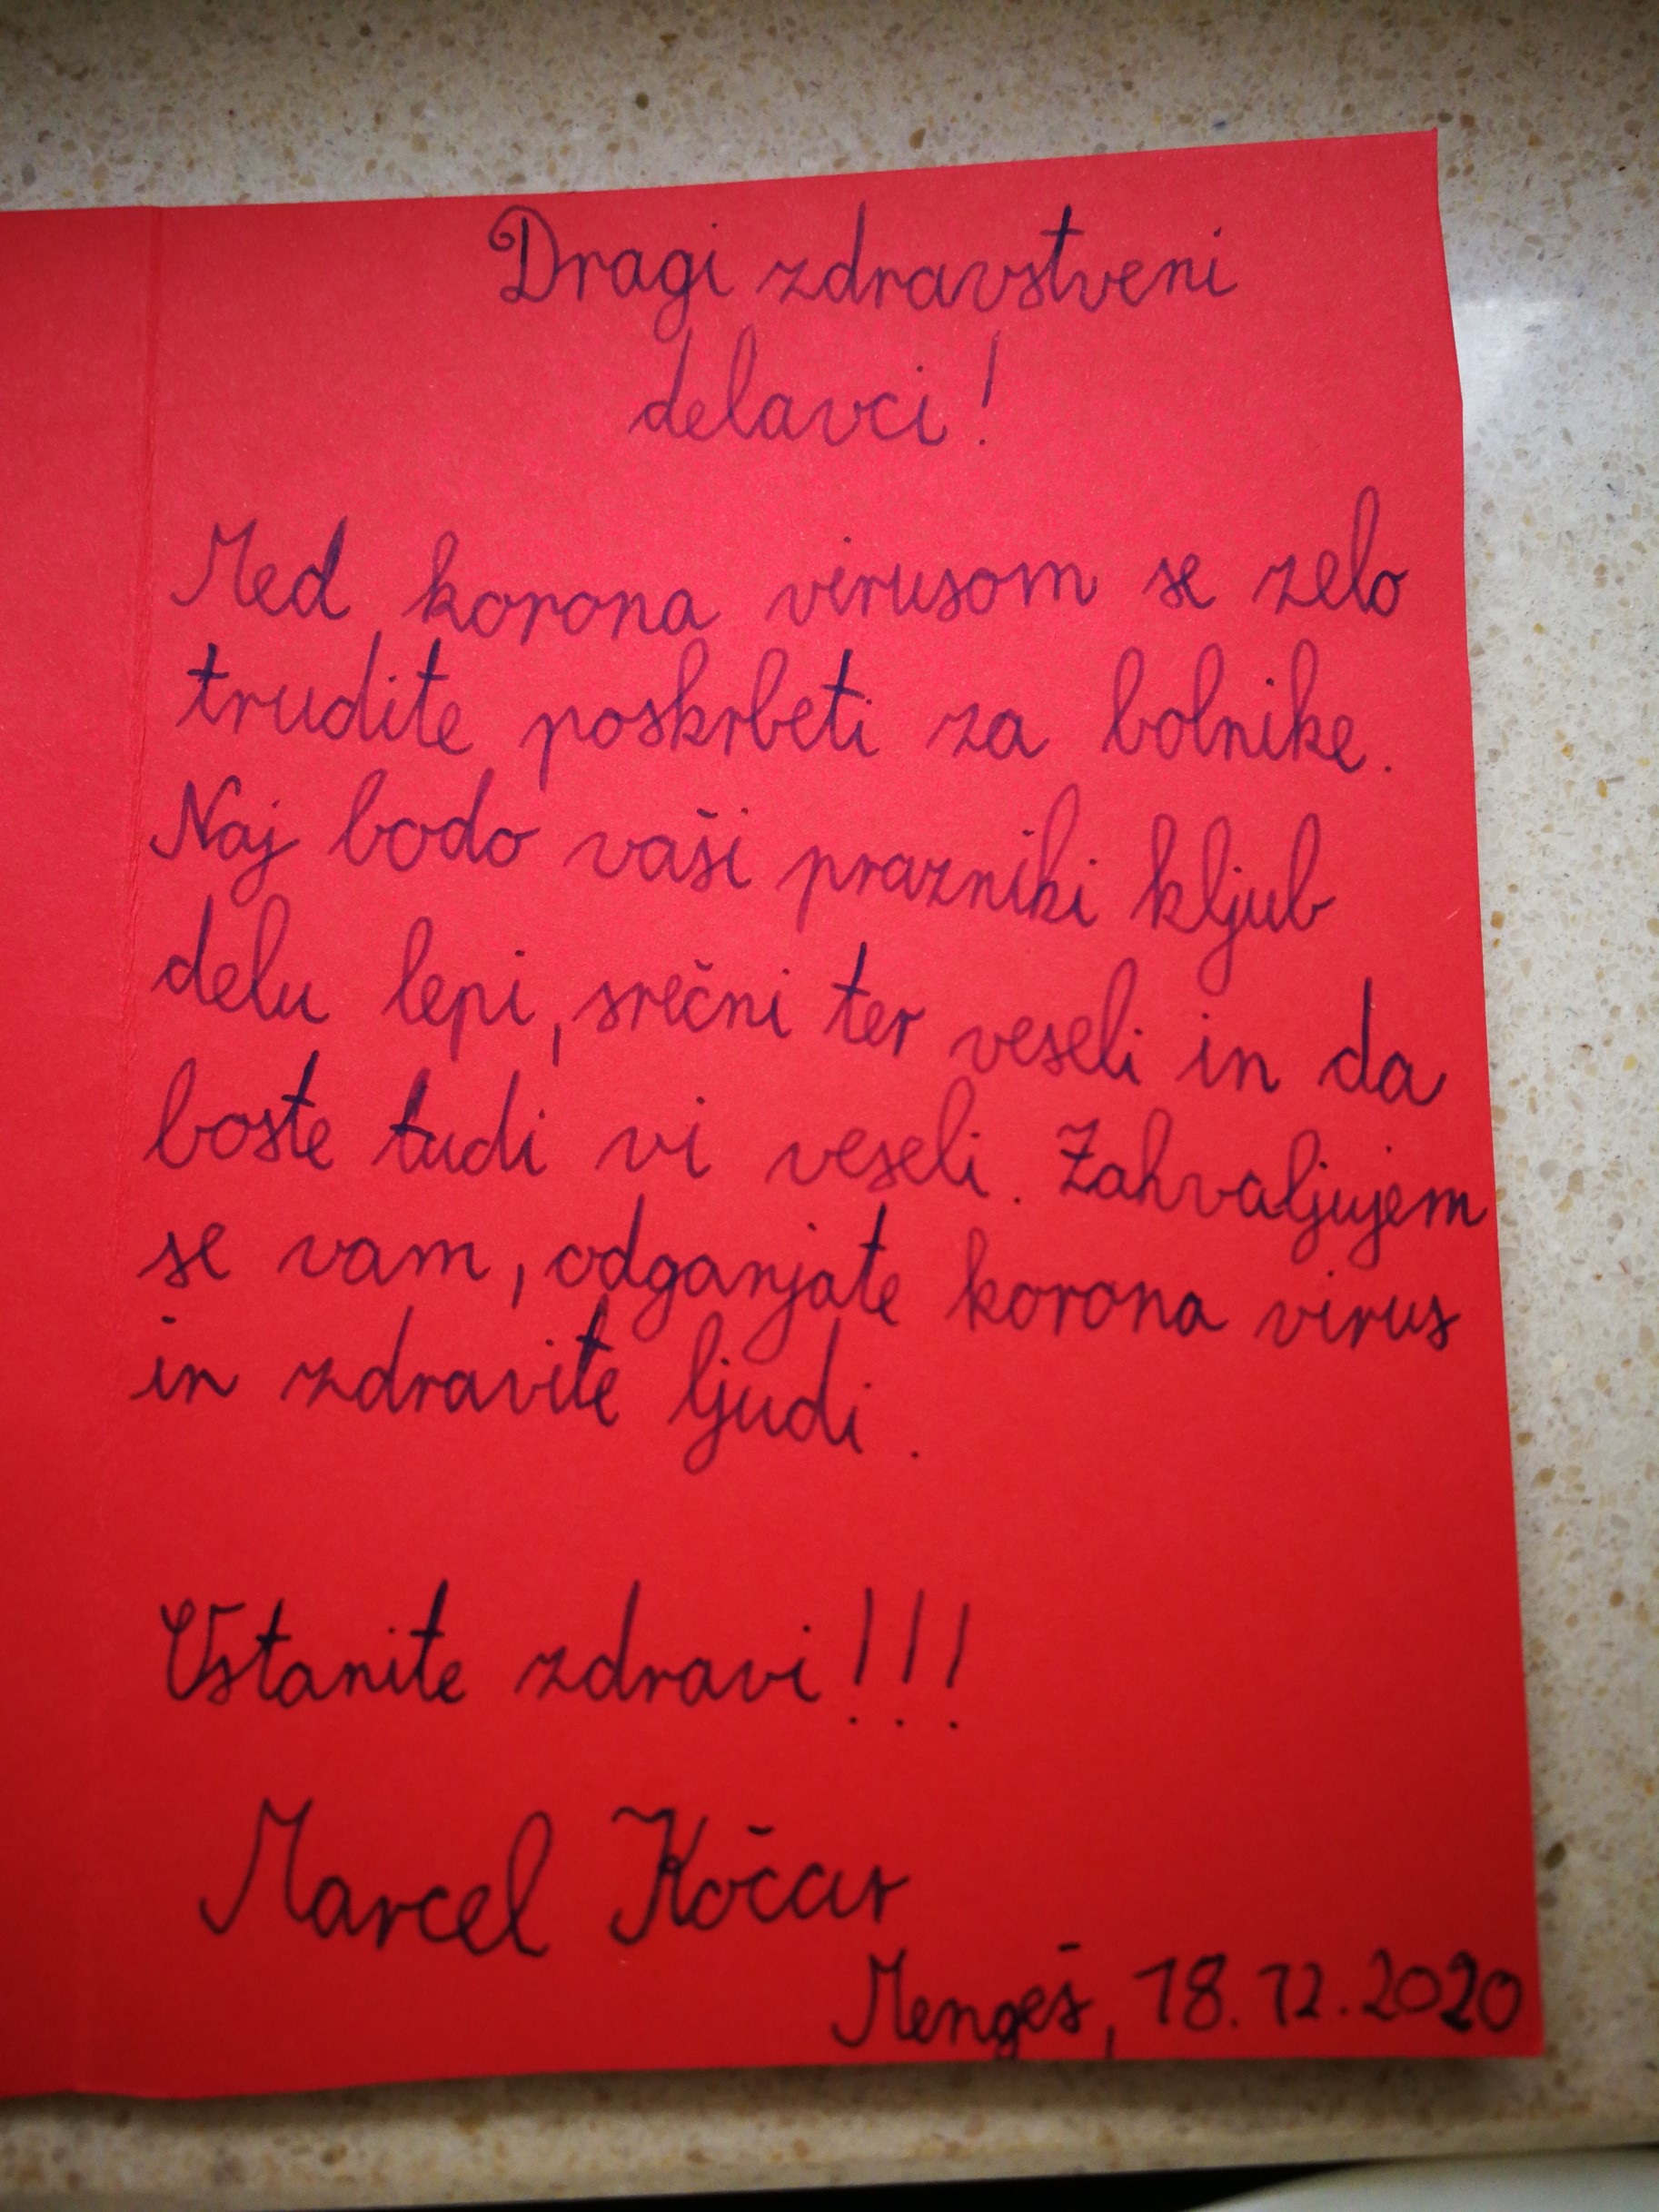 Dragi zdravstveni
delavci!
Med korona virusom se zelo
trudite poskrbeti za bolnike.
Naj bodo vaši prazniki kljub
delu lepi, srečni ter veseli in da
boste tudi vi veseli. Zahvaljujem
se vam, odganjate korona virus
in zdravite ljudi.
Ostanite zdravi!!!
Marcel Kočar
Mengeš, 18.12.2020